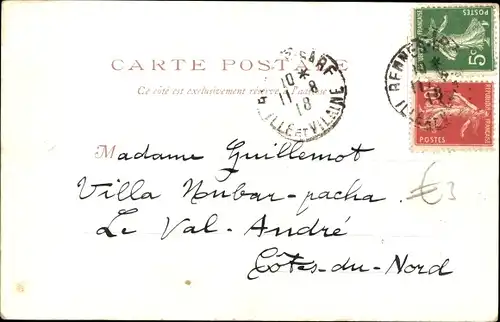 CARTE POSTALE
Ce côté est exclusivement réservé à l'adresse
RENNES-GARE
10 *
11-8
18
ILLE ET VILAINE
RENNES
10 *
11
18
ILLE
FRANÇAISE
POSTES
5c
POSTES
M
Madame Guillemot
Villa Nubar-pacha.
Le Val-André
Côtes-du-Nord
€3